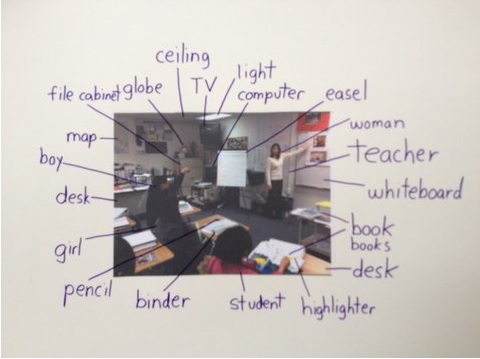 ceiling
light
TV
file cabinet globe
computer
easel
map
woman
boy
teacher
desk
whiteboard
girl
book
books
pencil
desk
binder
student
highlighter